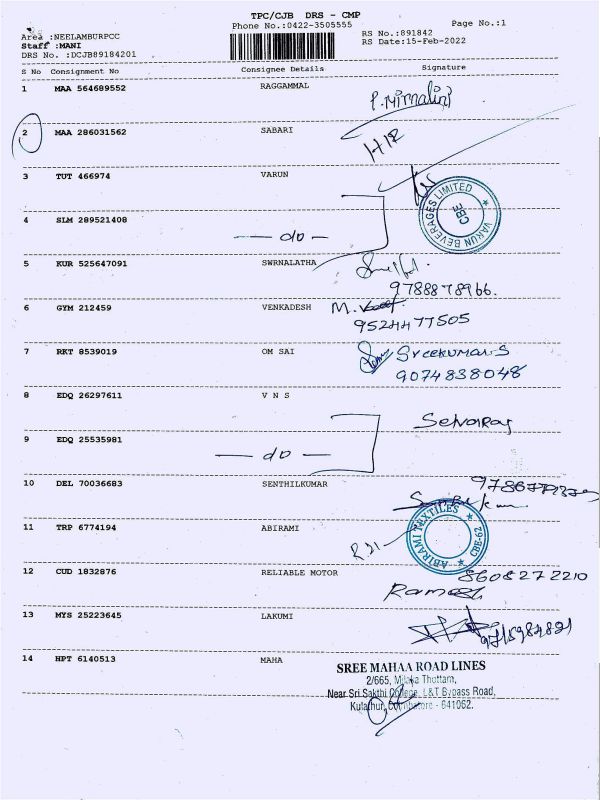 TPC/CJB DRS - CMP
Phone No.:0422-3505555 Page No.:1
Area :NEELAMBURPCC RS No.:891842
Staff :MANI RS Date:15-Feb-2022
DRS No. :DCJB89184201
S No Consignment No Consignee Details Signature
1 MAA 564689552 RAGGAMMAL P.Mirnalini
2 MAA 286031562 SABARI
3 TUT 466974 VARUN
VARUN BEVERAGES LIMITED CBE
4 SLM 289521408
— do —
5 KUR 525647091 SWRNALATHA
9788878966.
6 GYM 212459 VENKADESH M.
9524477505
7 RKT 8539019 OM SAI Sreekumar S
9074838048
8 EDQ 26297611 V N S Selvaraj
9 EDQ 25535981
— do —
10 DEL 70036683 SENTHILKUMAR
11 TRP 6774194 ABIRAMI
ABIRAMI TEXTILES CBE-62
12 CUD 1832876 RELIABLE MOTOR 8608272210
Ramesh
13 MYS 25223645 LAKUMI
14 HPT 6140513 MAHA
SREE MAHAA ROAD LINES
2/665, Thottam,
Near Sri Sakthi College, L&T Bypass Road,
Coimbatore - 641062.